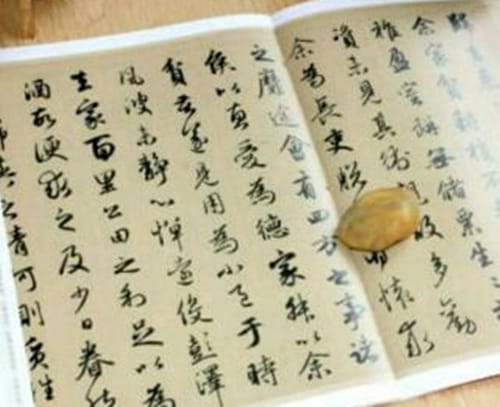 歸去來
余家貧耕植不
稚盈室缾無儲粟生
資未見其術親故多勸
余為長吏脫懷求
之靡途會有四方之事諸
侯以惠愛為德家叔以余
貧苦遂見用為小邑于時
風波未靜心憚遠役彭澤
去家百里公田之利足以為
酒故便求之及少日眷然
歟之情何則質性